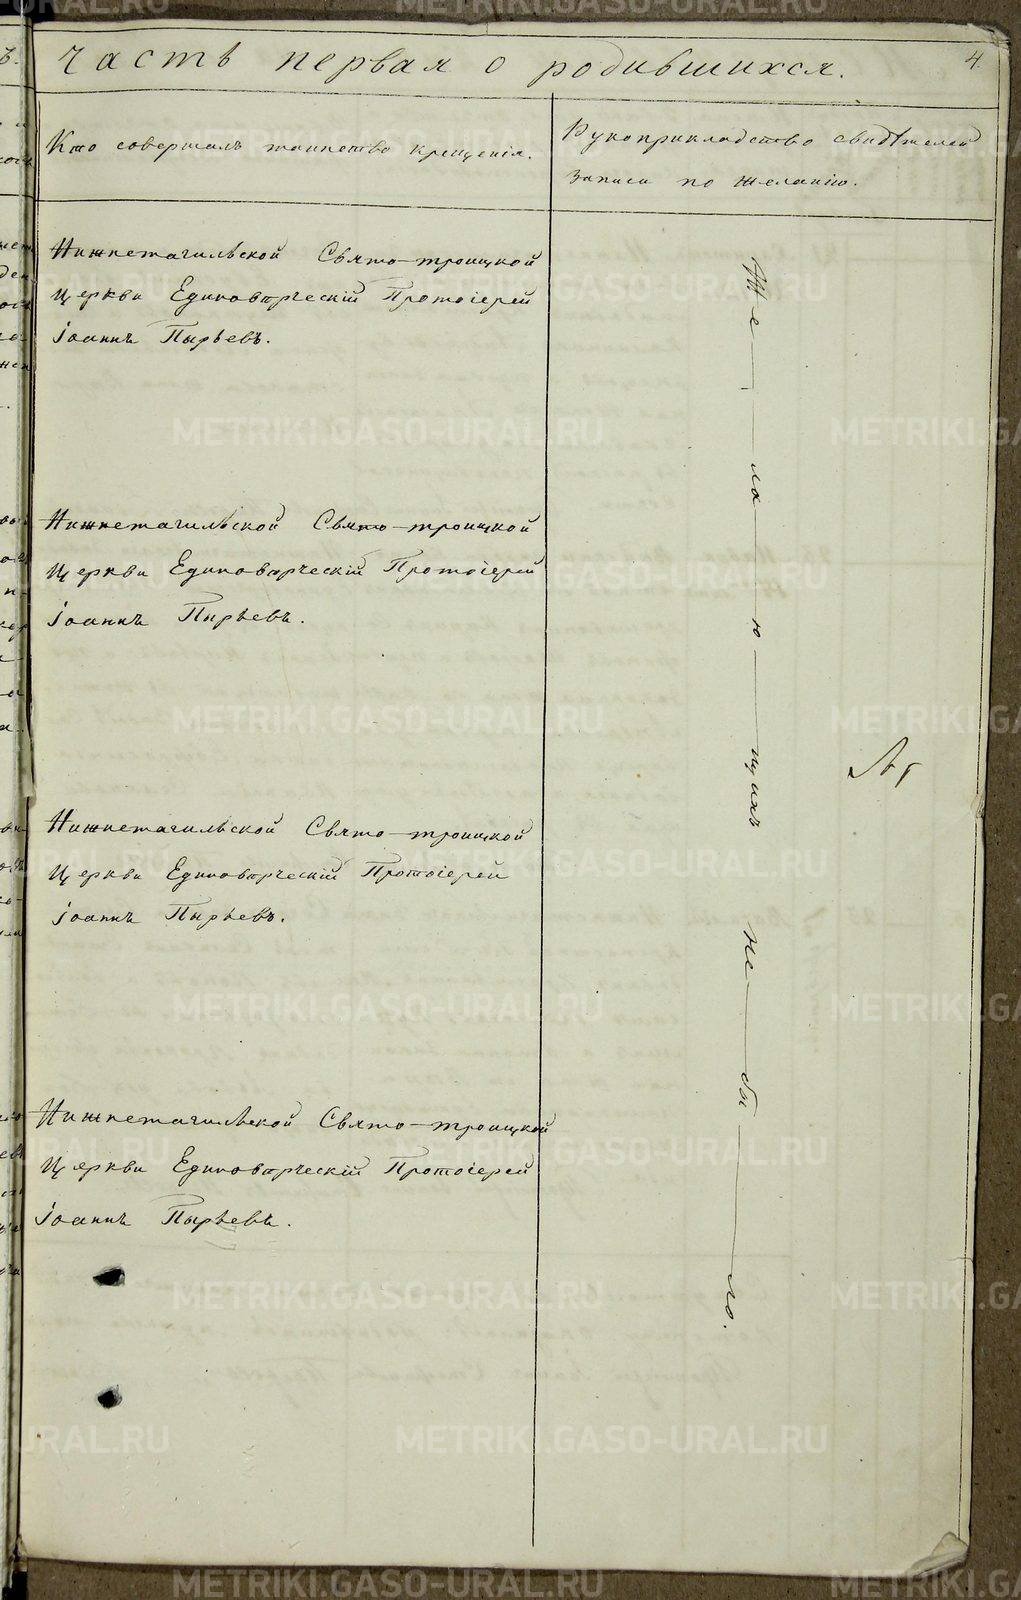 Часть первая о родившихся.
4
Кто совершалъ таинство крещенія.
Рукоприкладство свидѣтелей
записи по желанію.
Нижнетагильской Свято-троицкой
Церкви Единовѣрческій Протоіерей
Іоаннъ Пырьевъ.
Нижнетагильской Свято-троицкой
Церкви Единовѣрческій Протоіерей
Іоаннъ Пырьевъ.
Нижнетагильской Свято-троицкой
Церкви Единовѣрческій Протоіерей
Іоаннъ Пырьевъ.
Нижнетагильской Свято-троицкой
Церкви Единовѣрческій Протоіерей
Іоаннъ Пырьевъ.
Же-ла-ю-щихъ не-бы-ло.
METRIKI.GASO-URAL.RU